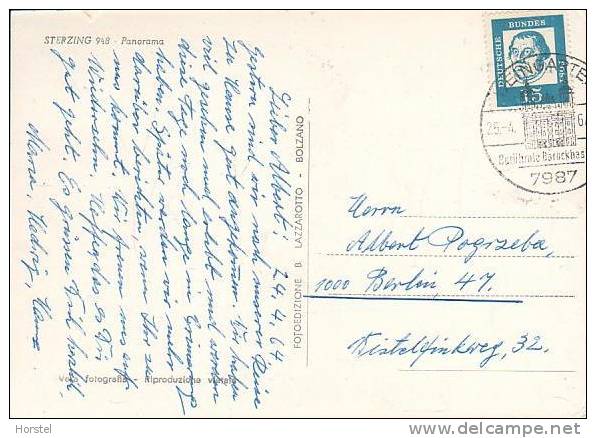 STERZING 948 - Panorama
Lieber Albert! 24.4.64
Gestern sind wir nach unserer Reise
zu Hause gut angekommen. Wir haben
viel gesehen und erlebt und werden
diese Tage noch lange in Erinnerung
haben. Später werden wir mehr
darüber berichten, wenn Ihr zu
uns kommt. Wir freuen uns auf
Wiedersehn. Hoffe, daß es Dir
gut geht. Es grüssen Dich herzl.
Maria Hedwig, Hans
FOTOEDIZIONE B. LAZZAROTTO - BOLZANO
Vera fotografia - Riproduzione vietata
DEUTSCHE BUNDESPOST
15
WEINGARTEN
25.-4.
6
Berühmte Barockbas
7987
Herrn
Albert Pogrzeba,
1000 Berlin 47.
Distelfinkweg, 32.
Horstel
www.delcampe.net